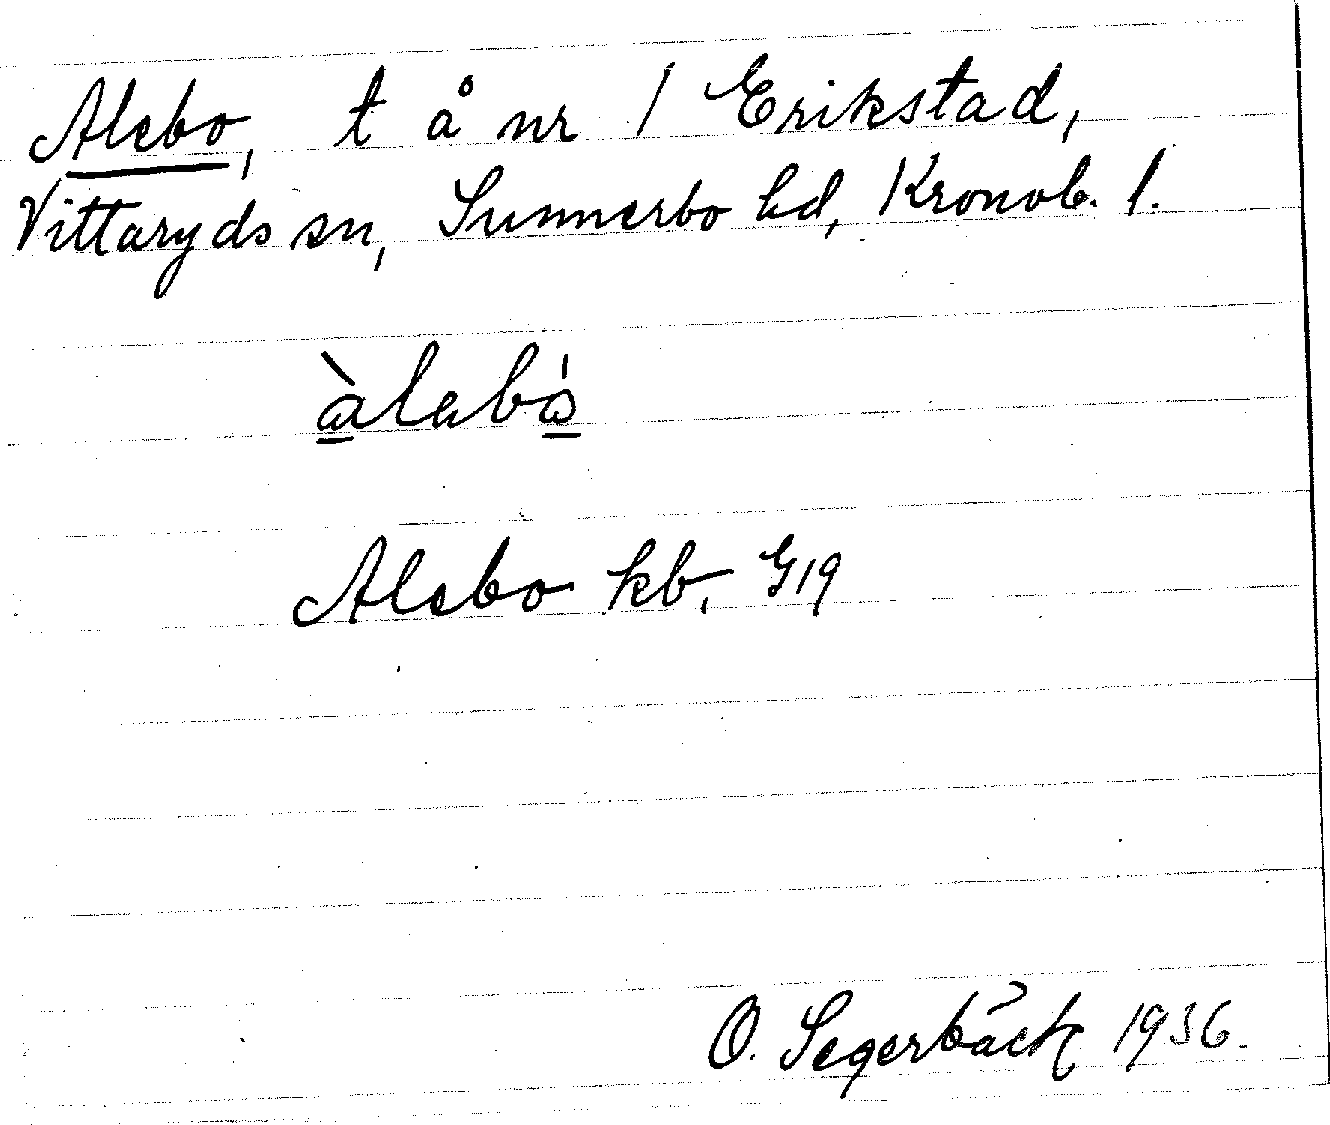 Alebo, t å nr 1 Erikstad,
Vittaryds sn, Sunnerbo hd, Kronob. l.
àlebó
Alebo kb. G19
O. Segerbäck 1936.